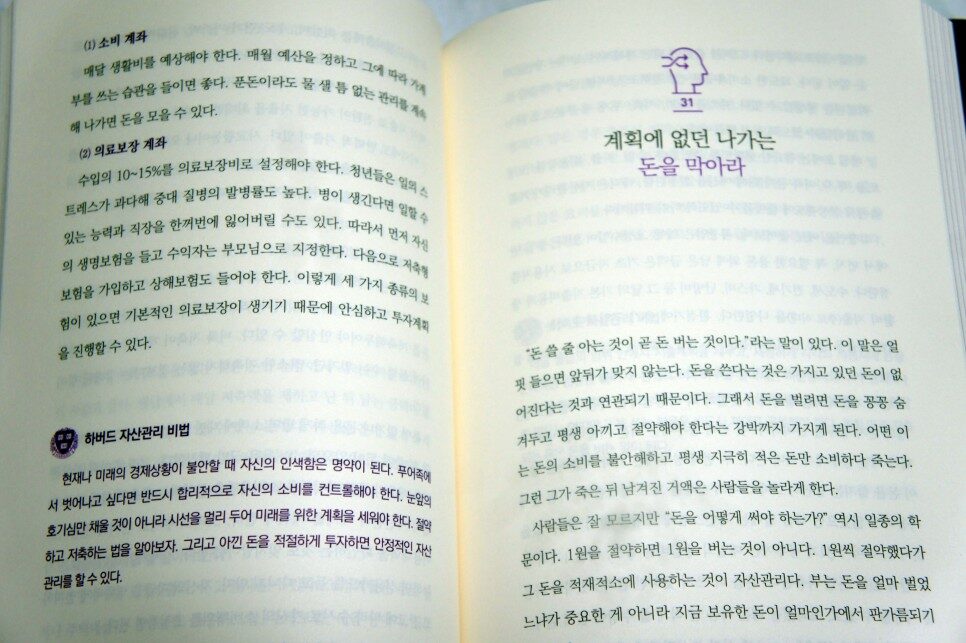 (1) 소비 계좌
매달 생활비를 예상해야 한다. 매월 예산을 정하고 그에 따라 가계
부를 쓰는 습관을 들이면 좋다. 푼돈이라도 물 샐 틈 없는 관리를 계속
해 나가면 돈을 모을 수 있다.
(2) 의료보장 계좌
수입의 10~15%를 의료보장비로 설정해야 한다. 청년들은 일의 스
트레스가 과다해 중대 질병의 발병률도 높다. 병이 생긴다면 일할 수
있는 능력과 직장을 한꺼번에 잃어버릴 수도 있다. 따라서 먼저 자신
의 생명보험을 들고 수익자는 부모님으로 지정한다. 다음으로 저축형
보험을 가입하고 상해보험도 들어야 한다. 이렇게 세 가지 종류의 보
험이 있으면 기본적인 의료보장이 생기기 때문에 안심하고 투자계획
을 진행할 수 있다.
하버드 자산관리 비법
현재나 미래의 경제상황이 불안할 때 자신의 인색함은 명약이 된다. 푸어족에
서 벗어나고 싶다면 반드시 합리적으로 자신의 소비를 컨트롤해야 한다. 눈앞의
호기심만 채울 것이 아니라 시선을 멀리 두어 미래를 위한 계획을 세워야 한다. 절약
하고 저축하는 법을 알아보자. 그리고 아낀 돈을 적절하게 투자하면 안정적인 자산
관리를 할 수 있다.
31
계획에 없던 나가는
돈을 막아라
“돈 쓸 줄 아는 것이 곧 돈 버는 것이다.”라는 말이 있다. 이 말은 얼
핏 들으면 앞뒤가 맞지 않는다. 돈을 쓴다는 것은 가지고 있던 돈이 없
어진다는 것과 연관되기 때문이다. 그래서 돈을 벌려면 돈을 꽁꽁 숨
겨두고 평생 아끼고 절약해야 한다는 강박까지 가지게 된다. 어떤 이
는 돈의 소비를 불안해하고 평생 지극히 적은 돈만 소비하다 죽는다.
그런 그가 죽은 뒤 남겨진 거액은 사람들을 놀라게 한다.
사람들은 잘 모르지만 “돈을 어떻게 써야 하는가?” 역시 일종의 학
문이다. 1원을 절약하면 1원을 버는 것이 아니다. 1원씩 절약했다가
그 돈을 적재적소에 사용하는 것이 자산관리다. 부는 돈을 얼마 벌었
느냐가 중요한 게 아니라 지금 보유한 돈이 얼마인가에서 판가름되기